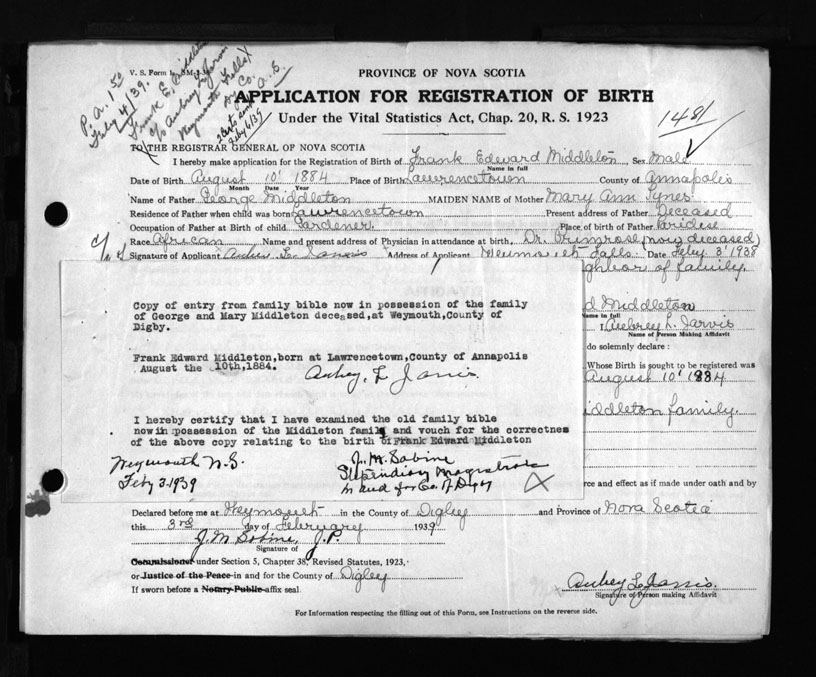 V. S. Form
P. A. 1 50
Feb 4/39.
Frank E. Middleton
c/o Aubrey L. Jarvis
Weymouth Falls
Co.
PROVINCE OF NOVA SCOTIA
APPLICATION FOR REGISTRATION OF BIRTH
Under the Vital Statistics Act, Chap. 20, R. S. 1923
1481
TO THE REGISTRAR GENERAL OF NOVA SCOTIA
I hereby make application for the Registration of Birth of Frank Edward Middleton Sex Male
Name in full
Date of Birth August 10' 1884 Place of Birth Lawrencetown County of Annapolis
Month Date Year
Name of Father George Middleton MAIDEN NAME of Mother Mary Ann Tynes
Residence of Father when child was born Lawrencetown Present address of Father Deceased
Occupation of Father at Birth of child Gardener. Place of birth of Father
Race African Name and present address of Physician in attendance at birth Dr. Primrose (now deceased)
Signature of Applicant Aubrey L. Jarvis Address of Applicant Weymouth Falls Date Feby 3' 1938
neighbor of family.
Copy of entry from family bible now in possession of the family
of George and Mary Middleton deceased, at Weymouth, County of
Digby.
Frank Edward Middleton, born at Lawrencetown, County of Annapolis
August the 10th, 1884.
Aubrey. L Jarvis.
I hereby certify that I have examined the old family bible
now in possession of the Middleton family and vouch for the correctnes
of the above copy relating to the birth of Frank Edward Middleton
Weymouth N. S.
Feb 3. 1939
J. M. Sabine
Stipendiary Magistrate
in and for Co. of Digby
d Middleton
Name in full
I Aubrey L. Jarvis
Name of Person Making Affidavit
do solemnly declare :
Whose Birth is sought to be registered was
August 10' 1884
iddleton family.
rce and effect as if made under oath and by
Declared before me at Weymouth in the County of Digby and Province of Nova Scotia
this 3rd day of February 1939
J. M. Sabine, J. P.
Signature of
Commissioner under Section 5, Chapter 38, Revised Statutes, 1923,
or Justice of the Peace in and for the County of Digby
If sworn before a Notary Public affix seal.
Aubrey L. Jarvis.
Signature of Person making Affidavit
For Information respecting the filling out of this Form, see Instructions on the reverse side.